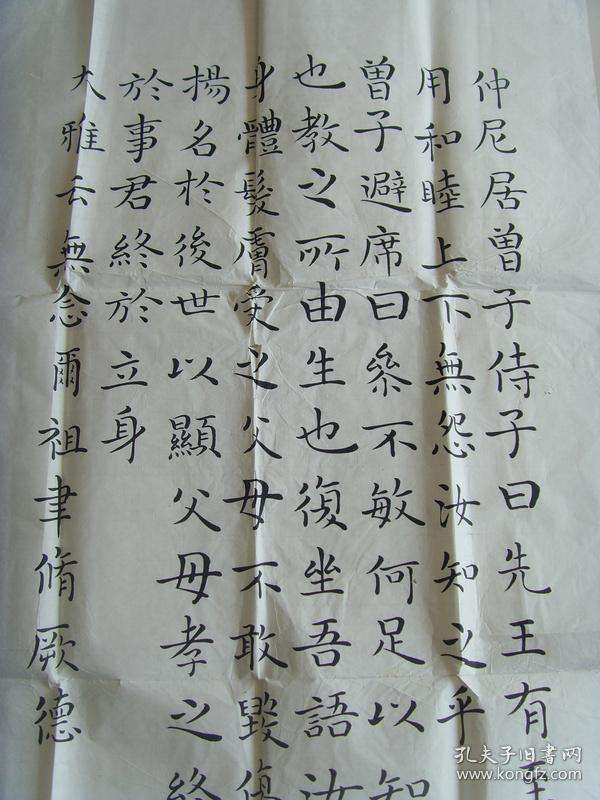 仲尼居曾子侍子曰先王有至
用和睦上下無怨汝知之乎
曾子避席曰參不敏何足以知
也教之所由生也復坐吾語汝
身體髮膚受之父母不敢毀傷
揚名於後世以顯父母孝之終
於事君終於立身
大雅云無念爾祖聿脩厥德
孔夫子旧书网
www.kongfz.com